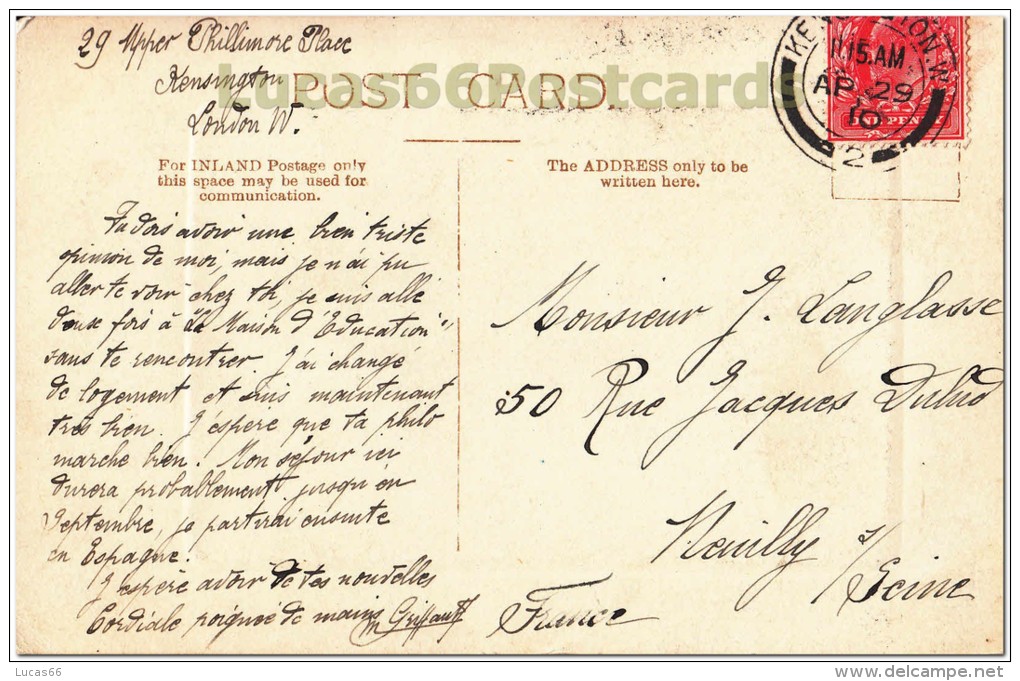 29 Upper Phillimore Place
Kensington
London W.
Lucas66Postcards
POST CARD.
KENSINGTON. W
11.15 AM
AP 29
10
2
ONE PENNY
For INLAND Postage only
this space may be used for
communication.
The ADDRESS only to be
written here.
Tu dois avoir une bien triste
opinion de moi, mais je n'ai pu
aller te voir chez toi, je suis allé
deux fois à La Maison d'Education"
sans te rencontrer. J'ai changé
de logement et suis maintenant
très bien. J'espère que ta philo
marche bien. Mon séjour ici
durera probablement jusqu'en
Septembre, je partirai ensuite
en Espagne.
J'espère avoir de tes nouvelles
Cordiale poignée de mains
Monsieur J. Langlasse
50 Rue Jacques Dulud
Neuilly s/
Seine
France
Lucas66
www.delcampe.net